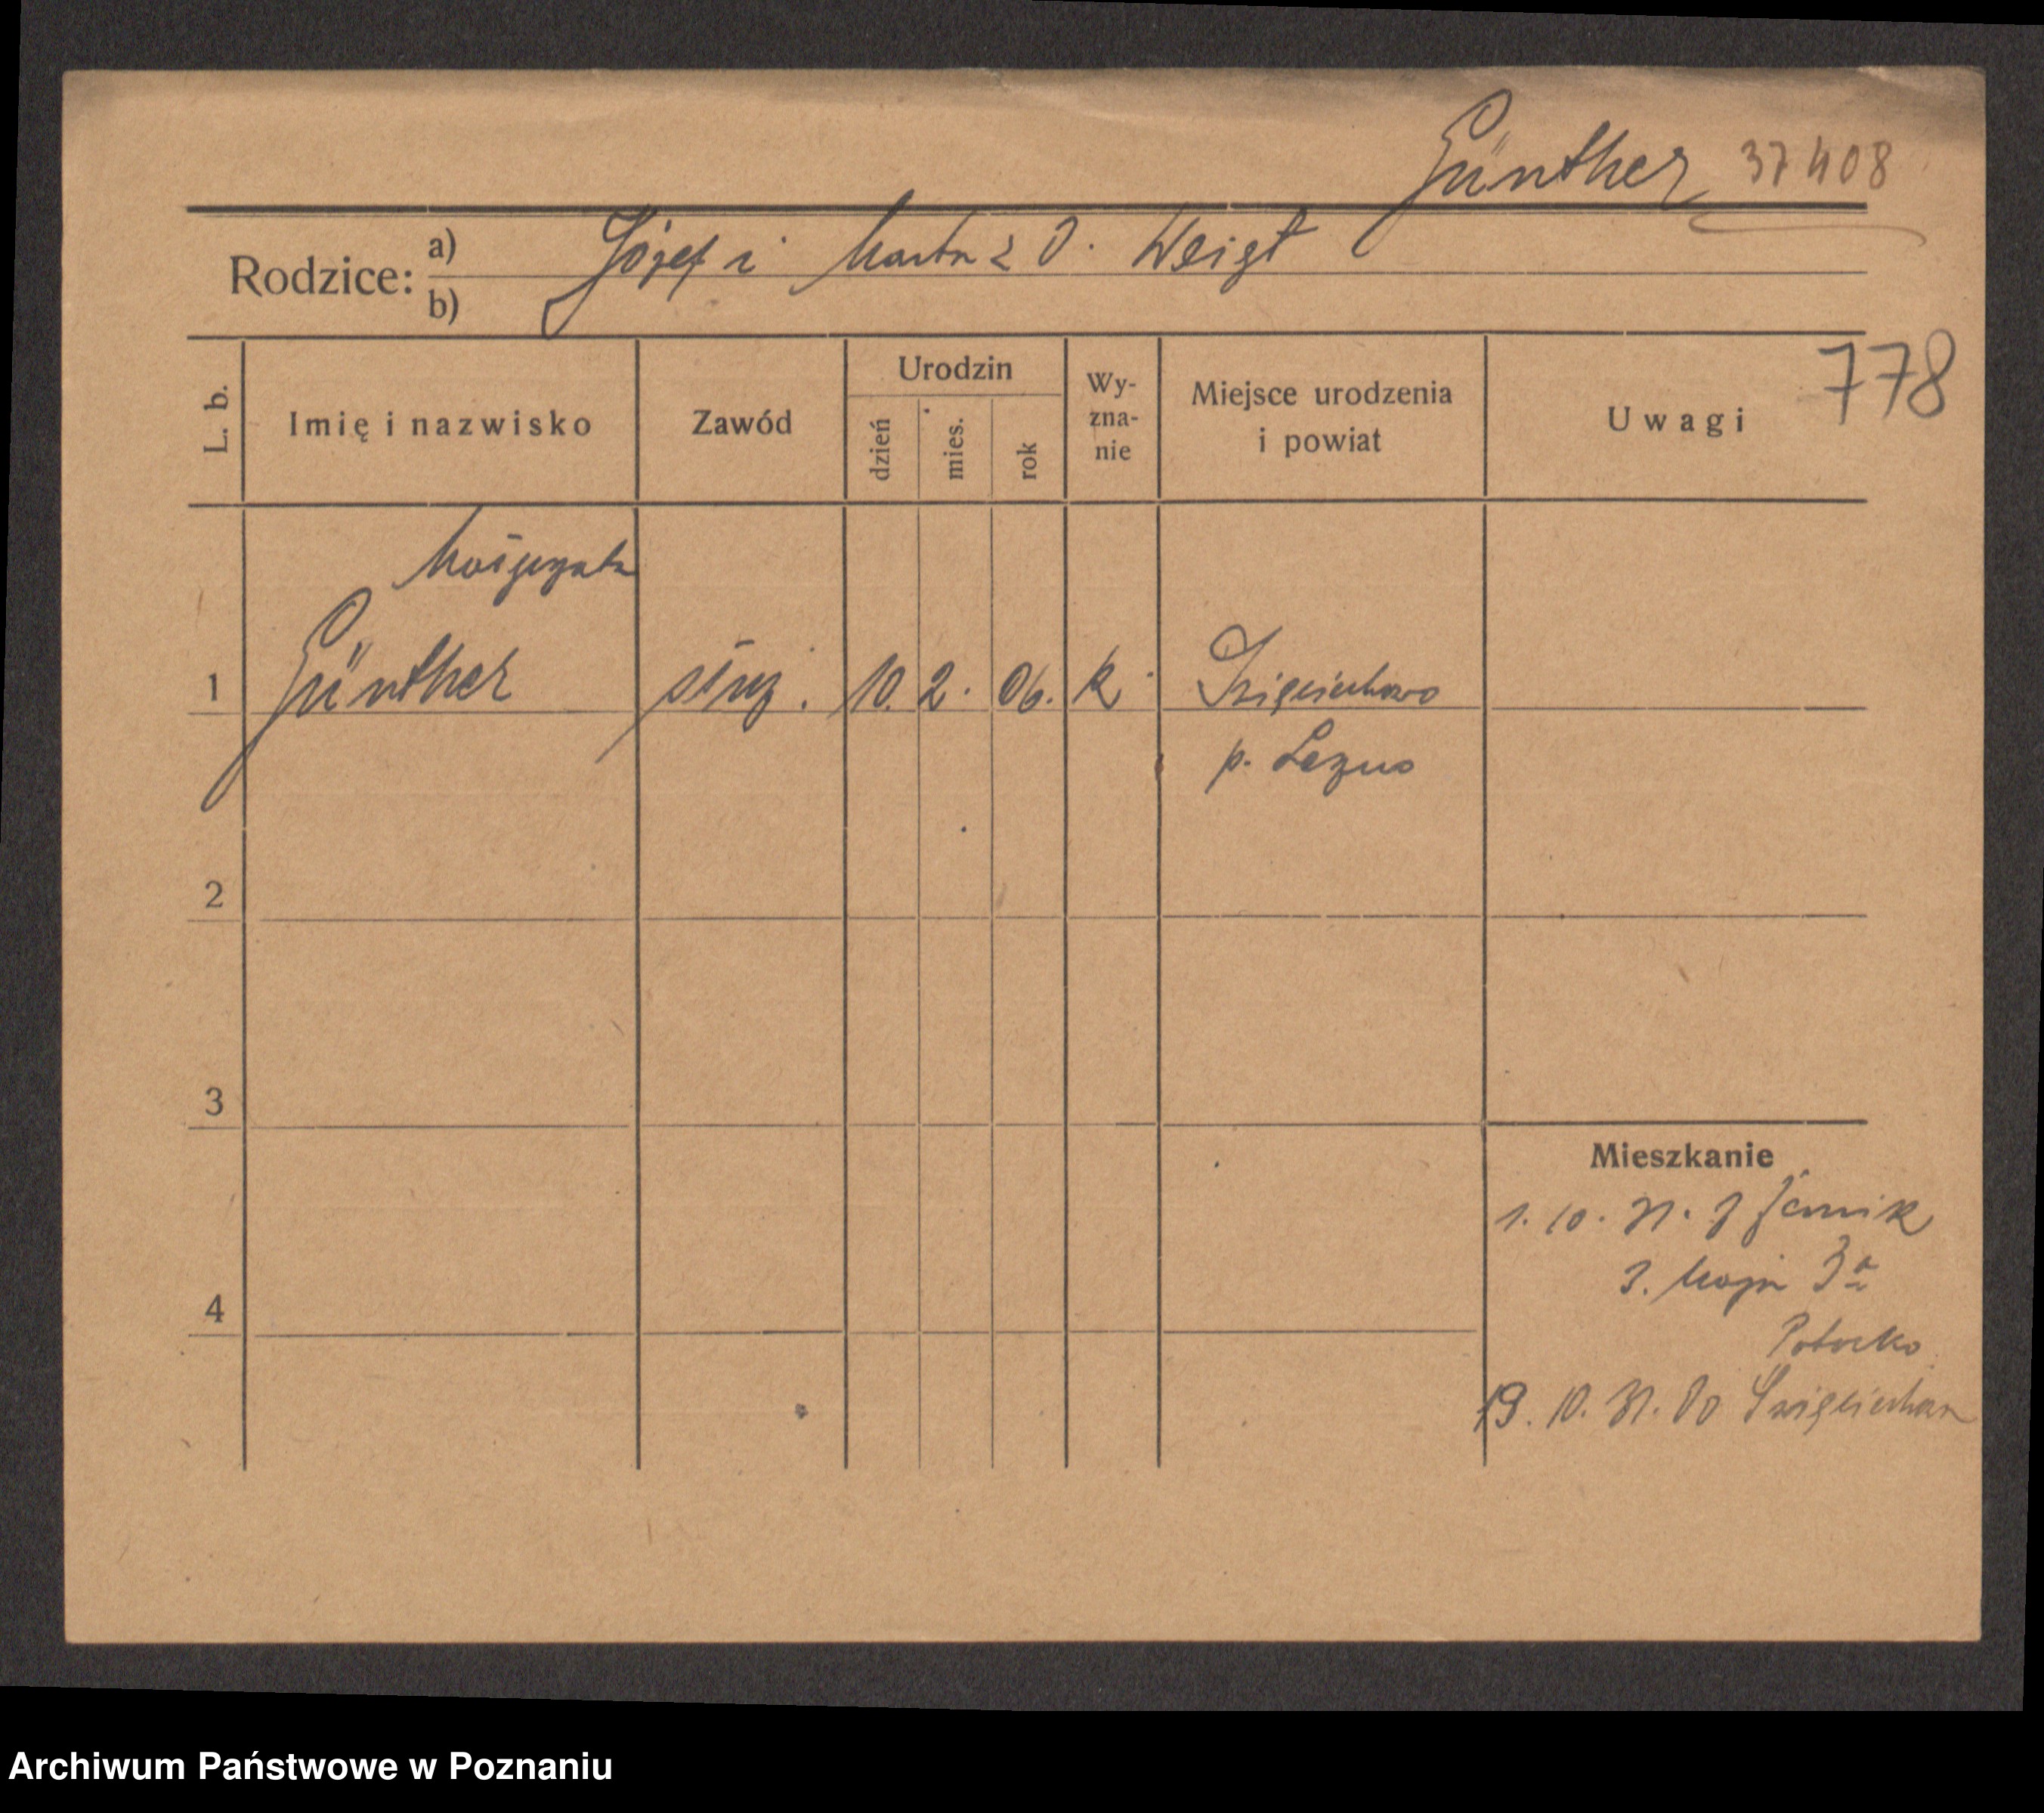 Günther 37408
Rodzice: a) Józef i Marta z d. Weigt
b)
778
L. b.
Imię i nazwisko
Zawód
Urodzin
dzień
mies.
rok
Wy-
zna-
nie
Miejsce urodzenia
i powiat
Uwagi
1 Günther służ. 10. 2. 06. k. Święciechowo
p. Leszno
2
3
Mieszkanie
1. 10. 31.
3. Maja 3a
4
19. 10. 31. do Święciechowa
Archiwum Państwowe w Poznaniu